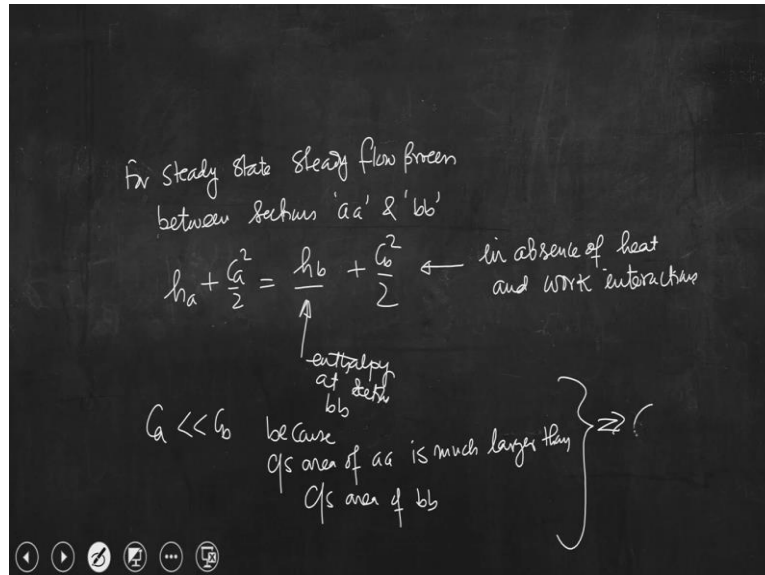 For steady state steady flow process
between sections 'aa' & 'bb'
h_a + C_a²/2 = h_b + C_b²/2 ← in absence of heat
and work interactions
enthalpy
at section
bb
C_a << C_b because
c/s area of aa is much larger than
c/s area of bb
} ⇒ (